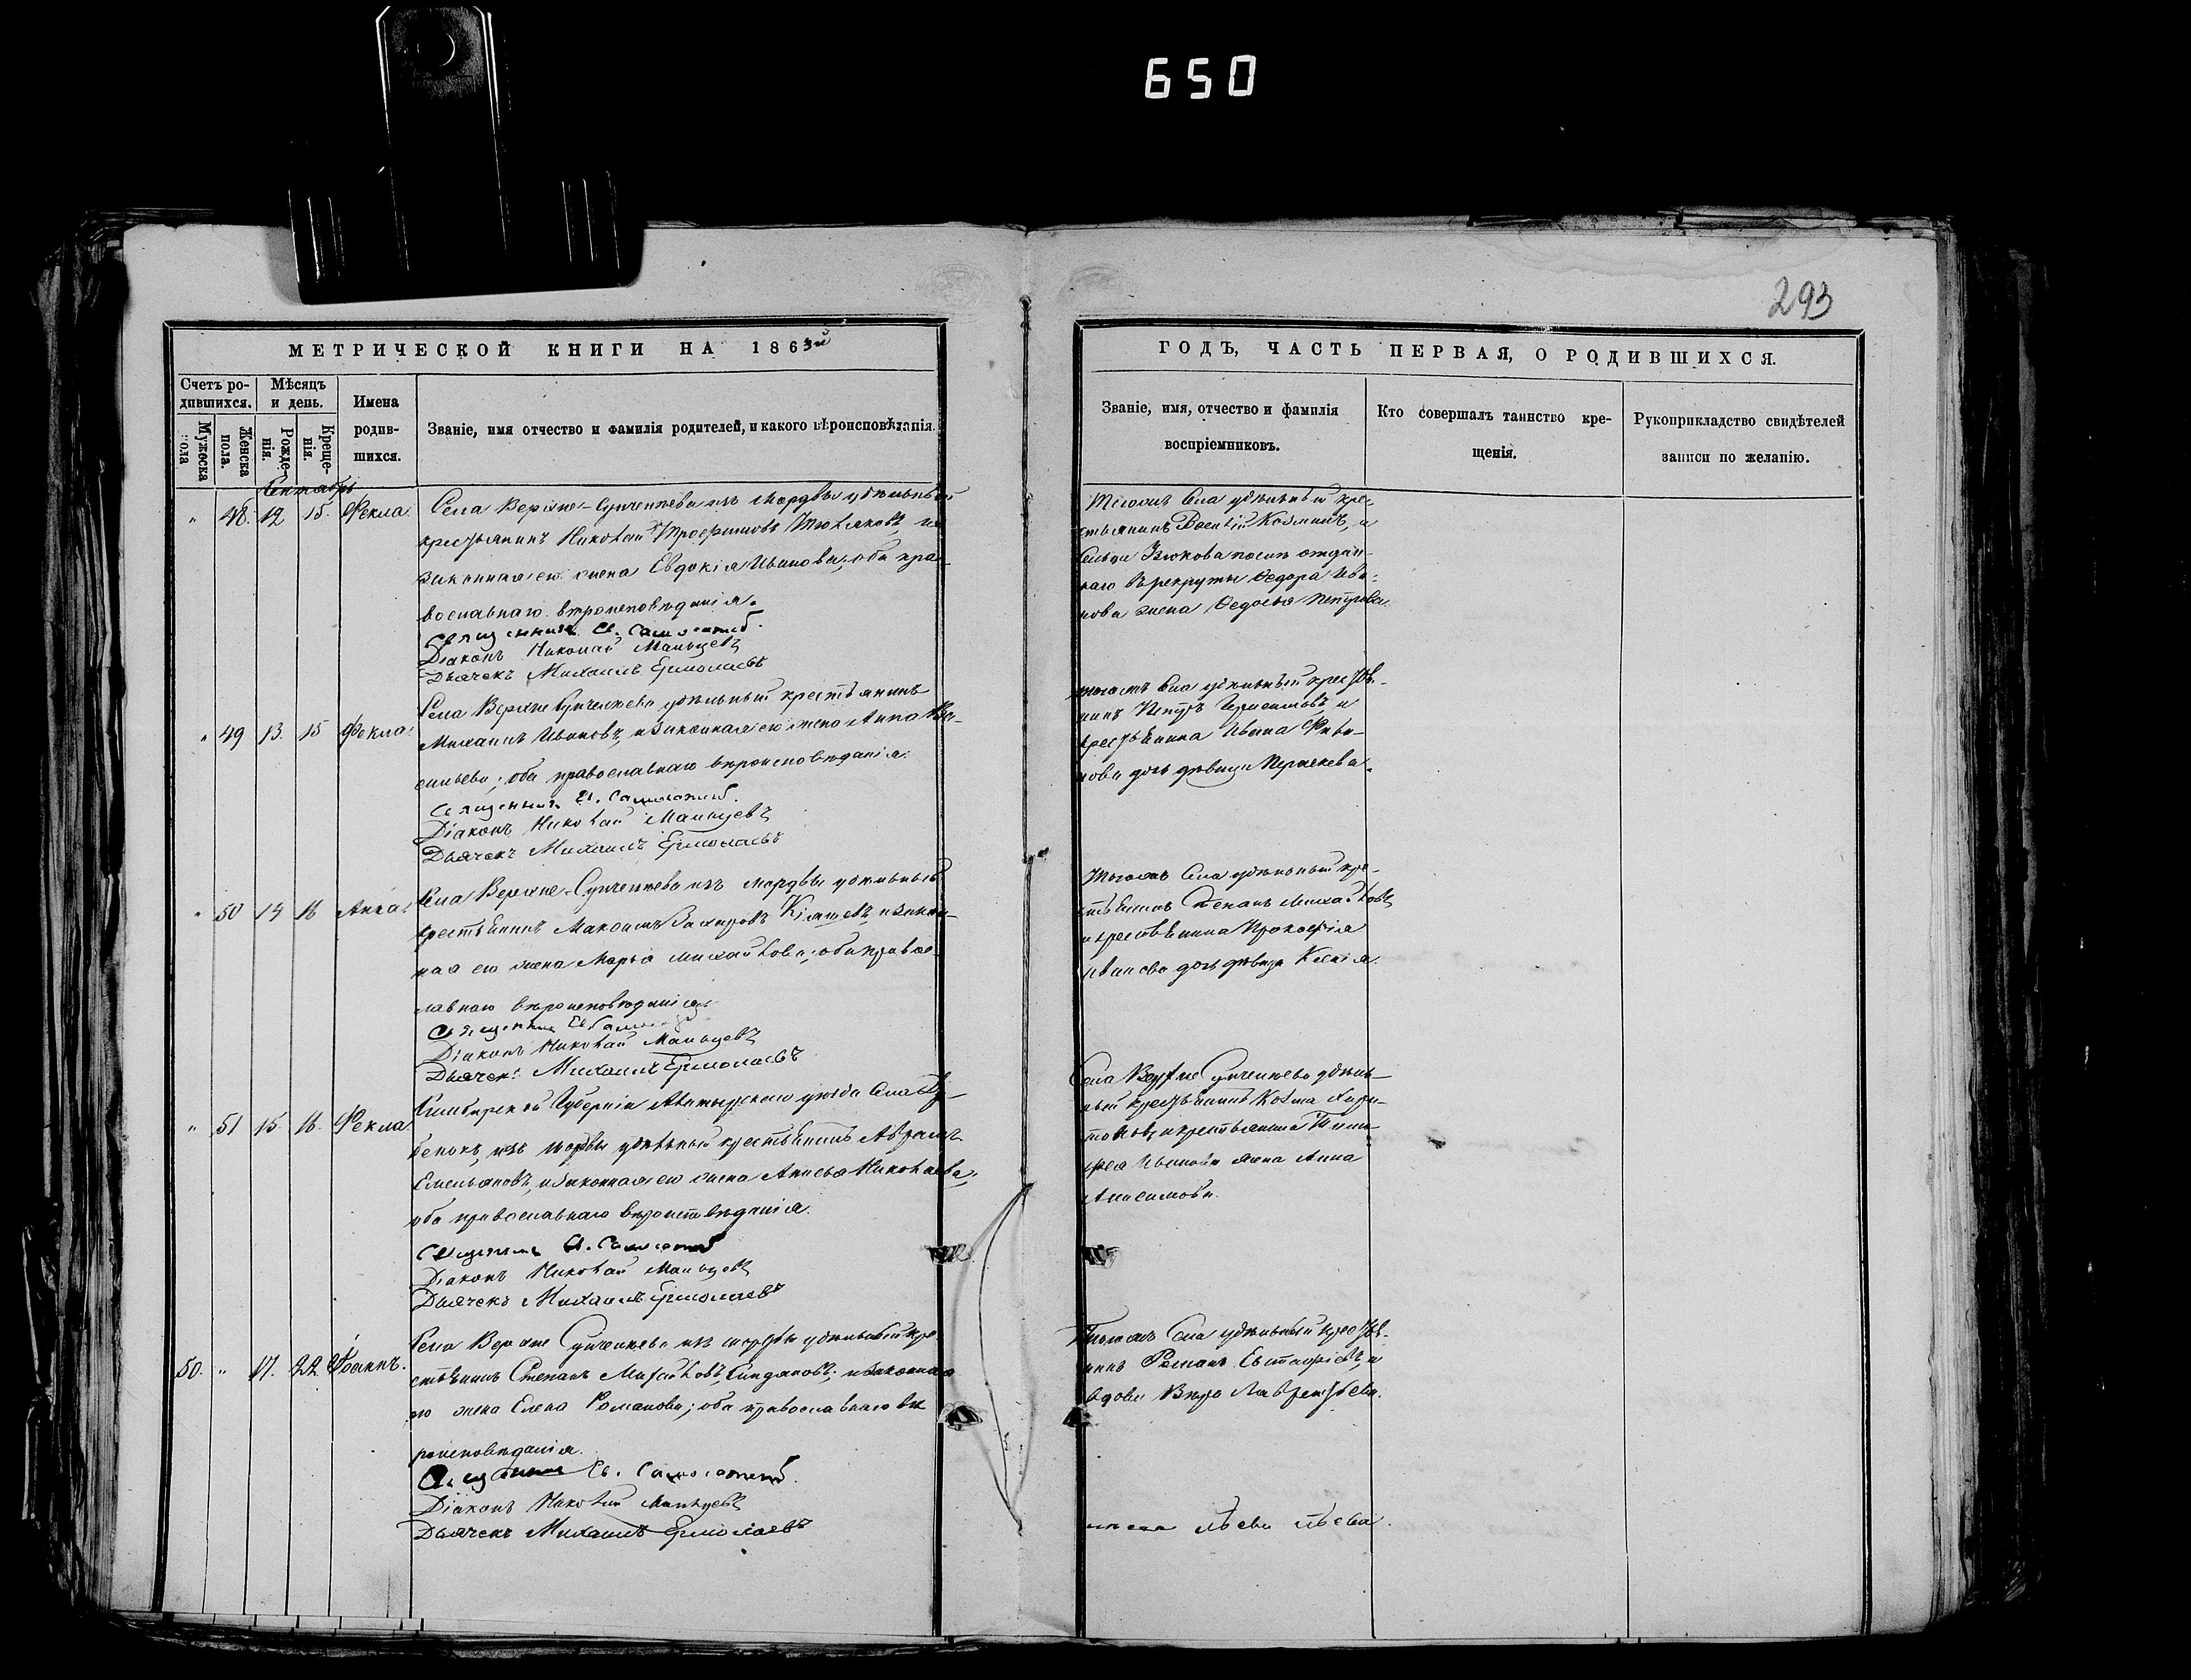 650
293
МЕТРИЧЕСКОЙ КНИГИ НА 1863й
ГОДЪ, ЧАСТЬ ПЕРВАЯ, О РОДИВШИХСЯ.
Счетъ ро-
дившихся.
Мужеска
пола
Женска
пола.
Мѣсяцъ
и день.
Рожде-
нія.
Креще-
нія.
Имена
родив-
шихся.
Званіе, имя отчество и фамилія родителей, и какого вѣроисповѣданія.
Званіе, имя, отчество и фамилія
воспріемниковъ.
Кто совершалъ таинство кре-
щенія.
Рукоприкладство свидѣтелей
записи по желанію.
Сентябрь
" 48. 12 15. Фекла.
Села Верхне- изъ мордвы удѣльный
крестьянинъ Николай Трофимовъ и
законная его жена Евдокія Иванова; оба пра-
вославнаго вѣроисповѣданія.
Священникъ
Діаконъ Николай Мальцевъ
Дьячекъ Михаилъ Ермолаевъ
Тогожъ Села удѣльный кре-
стьянинъ Василій Козминъ, и
отдан-
наго въ рекруты Ѳедора Ива-
нова жена Ѳедосья Петрова.
" 49 13. 15 Фекла.
Села Верхне удѣльный крестьянинъ
Михаилъ Ивановъ, и законная его жена Анна Ва-
сильева; оба православнаго вѣроисповѣданія.
Священникъ
Діаконъ Николай Мальцевъ
Дьячекъ Михаилъ Ермолаевъ
тогожъ Села удѣльный крестья-
нинъ Петръ и
крестьянина Ивана
дочь дѣвица Параскева.
" 50 14 16 Анна.
Села Верхне- изъ мордвы удѣльный
крестьянинъ Максимъ Захаровъ и закон-
ная его жена Марья Михайлова; оба правос-
лавнаго вѣроисповѣданія
Священникъ
Діаконъ Николай Мальцевъ
Дьячекъ Михаилъ Ермолаевъ
Тогожъ Села удѣльный кре-
стьянинъ Степанъ Михайловъ
и крестьянина Прокофія
Иванова дочь дѣвица Ксенія.
" 51 15. 16. Фекла
Симбирской Губерніи Алатырскаго уѣзда Села
изъ мордвы удѣльный крестьянинъ Аврамъ
Емельяновъ, и законная его жена Анисья Николаева,
оба православнаго вѣроисповѣданія.
Священникъ
Діаконъ Николай Мальцевъ
Дьячекъ Михаилъ Ермолаевъ
Села Верхне удѣль-
ный крестьянинъ Козма Хари-
тоновъ, и крестьянина Тимо-
фея Иванова жена Анна
Анисимова.
50. " 17. 22 Іоаннъ.
Села Верхне изъ мордвы удѣльный кре-
стьянинъ Степанъ Михайловъ и законная
его жена Елена Романова; оба православнаго вѣ
роисповѣданія.
Священникъ
Діаконъ Николай Мальцевъ
Дьячекъ Михаилъ Ермолаевъ
Тогожъ Села удѣльный крестья-
нинъ Романъ Евстафіевъ, и
вдова Вѣра Лаврентьева.